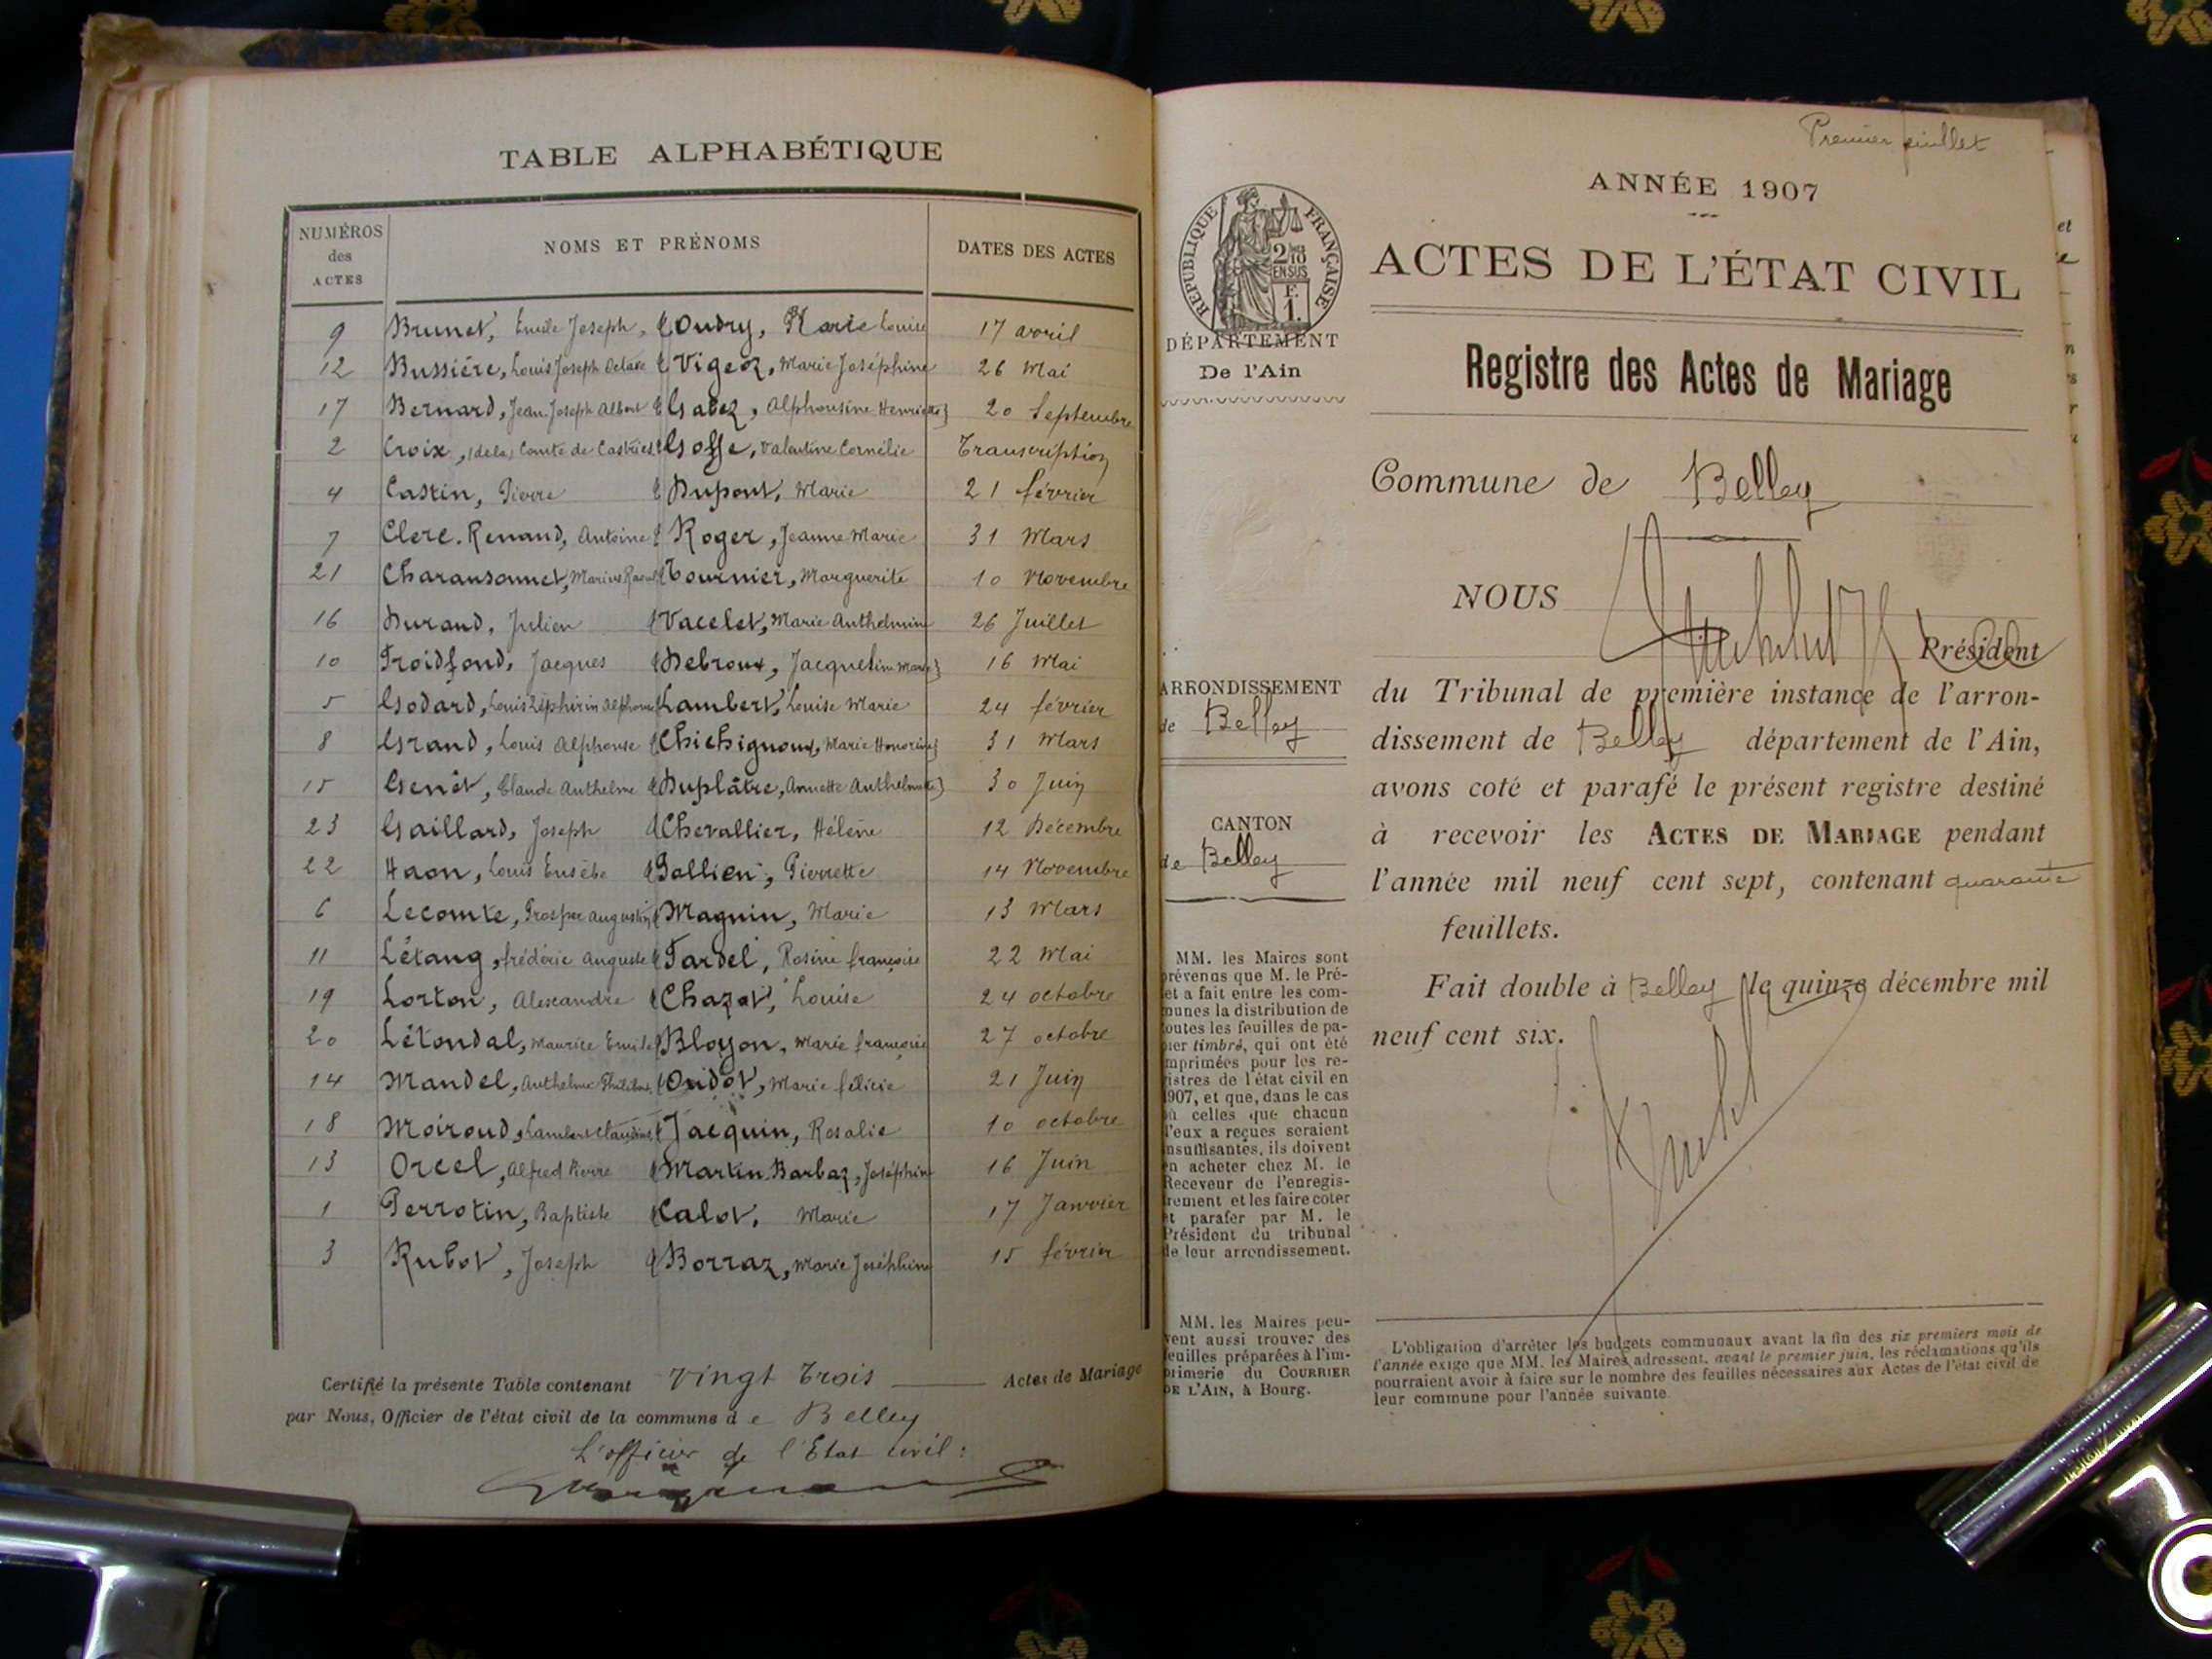 TABLE ALPHABÉTIQUE
NUMÉROS des ACTES
NOMS ET PRÉNOMS
DATES DES ACTES
9 Brunet, Emile Joseph, & Oudry, Marie Louise 17 avril
12 Bussière, Louis Joseph Octave & Vigeoz, Marie Joséphine 26 Mai
17 Bernard, Jean Joseph Albert & Gabez, Alphonsine Henriette 20 Septembre
2 Croix, (de la) Comte de Castries & Goffe, Valentine Cornélie Transcription
4 Castin, Pierre & Dupont, Marie 21 février
7 Clerc-Renaud, Antoine & Roger, Jeanne Marie 31 Mars
21 Charansonnet, Marius Raoul & Tournier, Marguerite 10 Novembre
16 Durand, Julien & Vacelet, Marie Anthelmine 26 Juillet
10 Froidfond, Jacques & Debroux, Jacqueline Marie 16 Mai
5 Godard, Louis Zéphirin Alphonse & Lambert, Louise Marie 24 février
8 Grand, Louis Alphonse & Chichignoud, Marie Honorine 31 Mars
15 Genêt, Claude Anthelme & Duplâtre, Annette Anthelmette 30 Juin
23 Gaillard, Joseph & Chevallier, Hélène 12 Décembre
22 Haon, Louis Eusèbe & Gollien, Pierrette 14 Novembre
6 Lecomte, Prosper Augustin, & Magnin, Marie 13 Mars
11 Létang, frédéric Auguste & Tardel, Rosine françoise 22 Mai
19 Lorton, Alexandre & Chazot, Louise 24 octobre
20 Létondal, Maurice Emile & Bloyon, Marie françoise 27 octobre
14 Mandel, Anthelme Philibert & Oudot, Marie félicie 21 Juin
18 Moiroud, Lambert Claudius & Jacquin, Rosalie 10 octobre
13 Orcel, Alfred Pierre & Martin-Barbaz, Joséphine 16 Juin
1 Perrotin, Baptiste & Calot, Marie 17 Janvier
3 Rubot, Joseph & Borraz, Marie Joséphine 15 février
Certifié la présente Table contenant Vingt trois Actes de Mariage
par Nous, Officier de l'état civil de la commune de Belley
L'officier de l'Etat civil :
Premier feuillet
ANNÉE 1907
ACTES DE L'ÉTAT CIVIL
Registre des Actes de Mariage
Commune de Belley
NOUS
Président
du Tribunal de première instance de l'arron-
dissement de Belley département de l'Ain,
avons coté et parafé le présent registre destiné
à recevoir les ACTES DE MARIAGE pendant
l'année mil neuf cent sept, contenant quarante
feuillets.
Fait double à Belley le quinze décembre mil
neuf cent six.
L'obligation d'arrêter les budgets communaux avant la fin des six premiers mois de
l'année exige que MM. les Maires adressent, avant le premier juin, les réclamations qu'ils
pourraient avoir à faire sur le nombre des feuilles nécessaires aux Actes de l'état civil de
leur commune pour l'année suivante.
RÉPUBLIQUE FRANÇAISE
2/10 EN SUS
F. 1.
DÉPARTEMENT
De l'Ain
ARRONDISSEMENT
de Belley
CANTON
de Belley
MM. les Maires sont
prévenus que M. le Pré-
fet a fait entre les com-
munes la distribution de
toutes les feuilles de pa-
pier timbré, qui ont été
imprimées pour les re-
gistres de l'état civil en
1907, et que, dans le cas
où celles que chacun
d'eux a reçues seraient
insuffisantes, ils doivent
en acheter chez M. le
Receveur de l'enregis-
trement et les faire coter
et parafer par M. le
Président du tribunal
de leur arrondissement.
MM. les Maires peu-
vent aussi trouver des
feuilles préparées à l'im-
primerie du COURRIER
DE L'AIN, à Bourg.